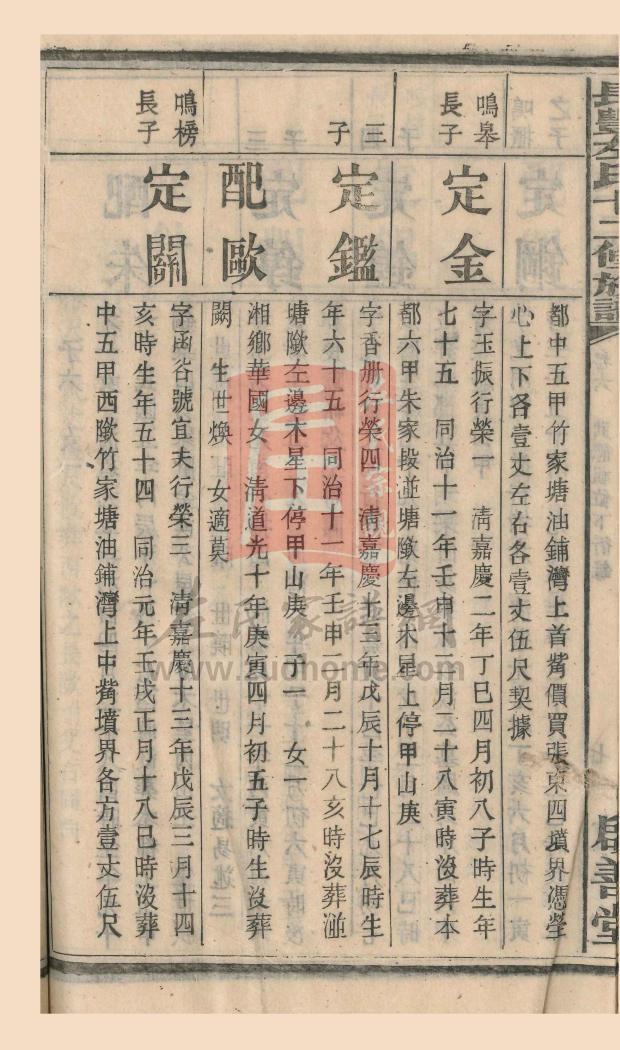 長豐左氏十二修族譜
啟善堂
都中五甲竹家塘油鋪灣上首觜價買張東四墳界憑塋
心上下各壹丈左右各壹丈伍尺契據
鳴皋
長子
定金
字玉振行榮一 清嘉慶二年丁巳四月初八子時生年
七十五 同治十一年壬申十二月二十八寅時沒葬本
都六甲朱家段湴塘歟左邊木星上停甲山庚
三
子
定鑑
字香册行榮四 清嘉慶十三年戊辰十月十七辰時生
年六十五 同治十一年壬申二月二十八亥時沒葬湴
塘歟左邊木星下停甲山庚 子一 女一
配歐
湘鄉華國女 清道光十年庚寅四月初五子時生沒葬
闕 生世煥 女適莫
鳴榜
長子
定關
字函谷號宜夫行榮三 清嘉慶十三年戊辰三月十四
亥時生年五十四 同治元年壬戌正月十八巳時沒葬
中五甲西歟竹家塘油鋪灣上中觜墳界各方壹丈伍尺
左氏家譜網
www.zuohome.com